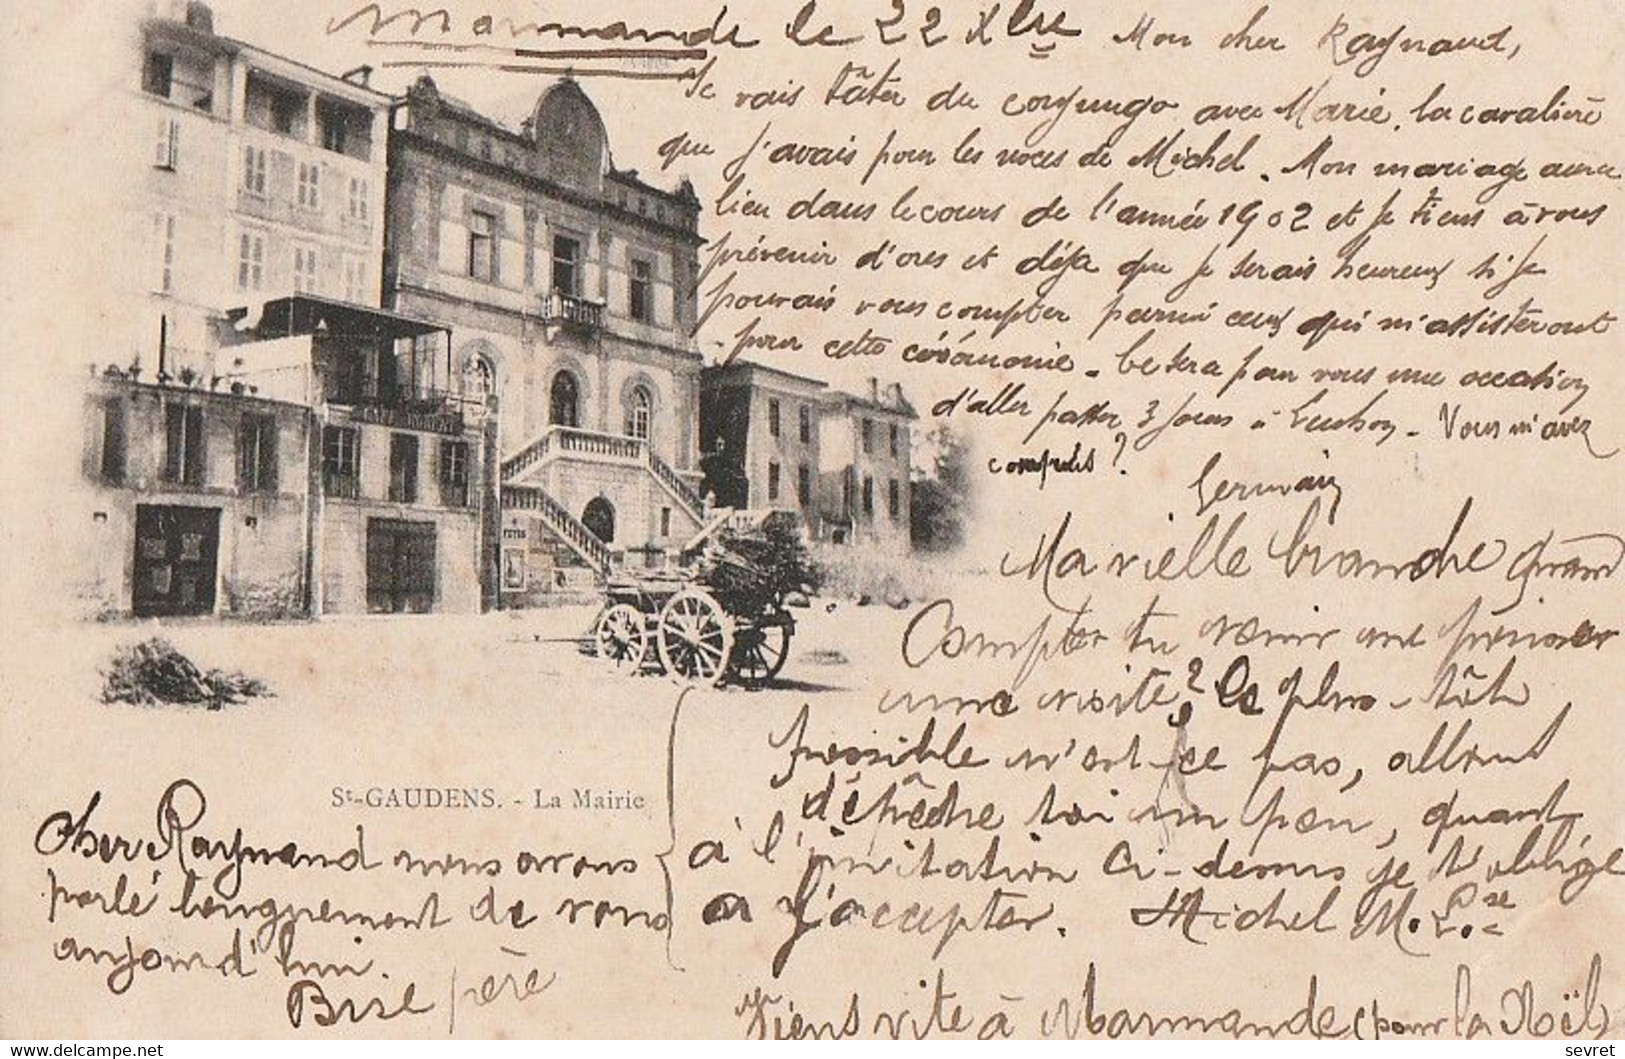 Marmande le 22 Xbre Mon cher Raynaud,
Je vais tâter du conjungo avec Marie, la cavalière
que j'avais pour les noces de Michel. Mon mariage aura
lieu dans le cours de l'année 1902 et je tiens à vous
prévenir d'ores et déja que je serais heureux si je
pouvais vous compter parmi ceux qui m'assisteront
pour cette cérémonie. Ce sera pour vous une occasion
d'aller passer 3 jours à Luchon. Vous m'avez
compris?
Germain
Ma vielle branche quand
Compter tu venir me
une visite? Le plus-tôt
possible n'est-ce pas, allons
dépêche toi un peu, quant
à l'invitation ci-dessus je t'oblige
a l'accepter. Michel M.
Viens vite à Marmande (pour la Noël)
St-GAUDENS. - La Mairie
Cher Raynaud nous avons
parlé longuement de vous
aujourd'hui.
Bise père
CAFÉ
delcampe.net
sevret